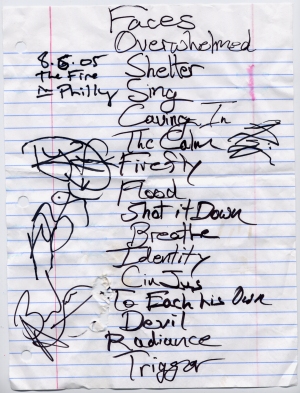 Faces
Overwhelmed
8.5.05
The Fire
in Philly
Shelter
Sing
Caving In
The Calm
Firefly
Flood
Shot it Down
Breathe
Identity
To Each his Own
Devil
Radiance
Trigger